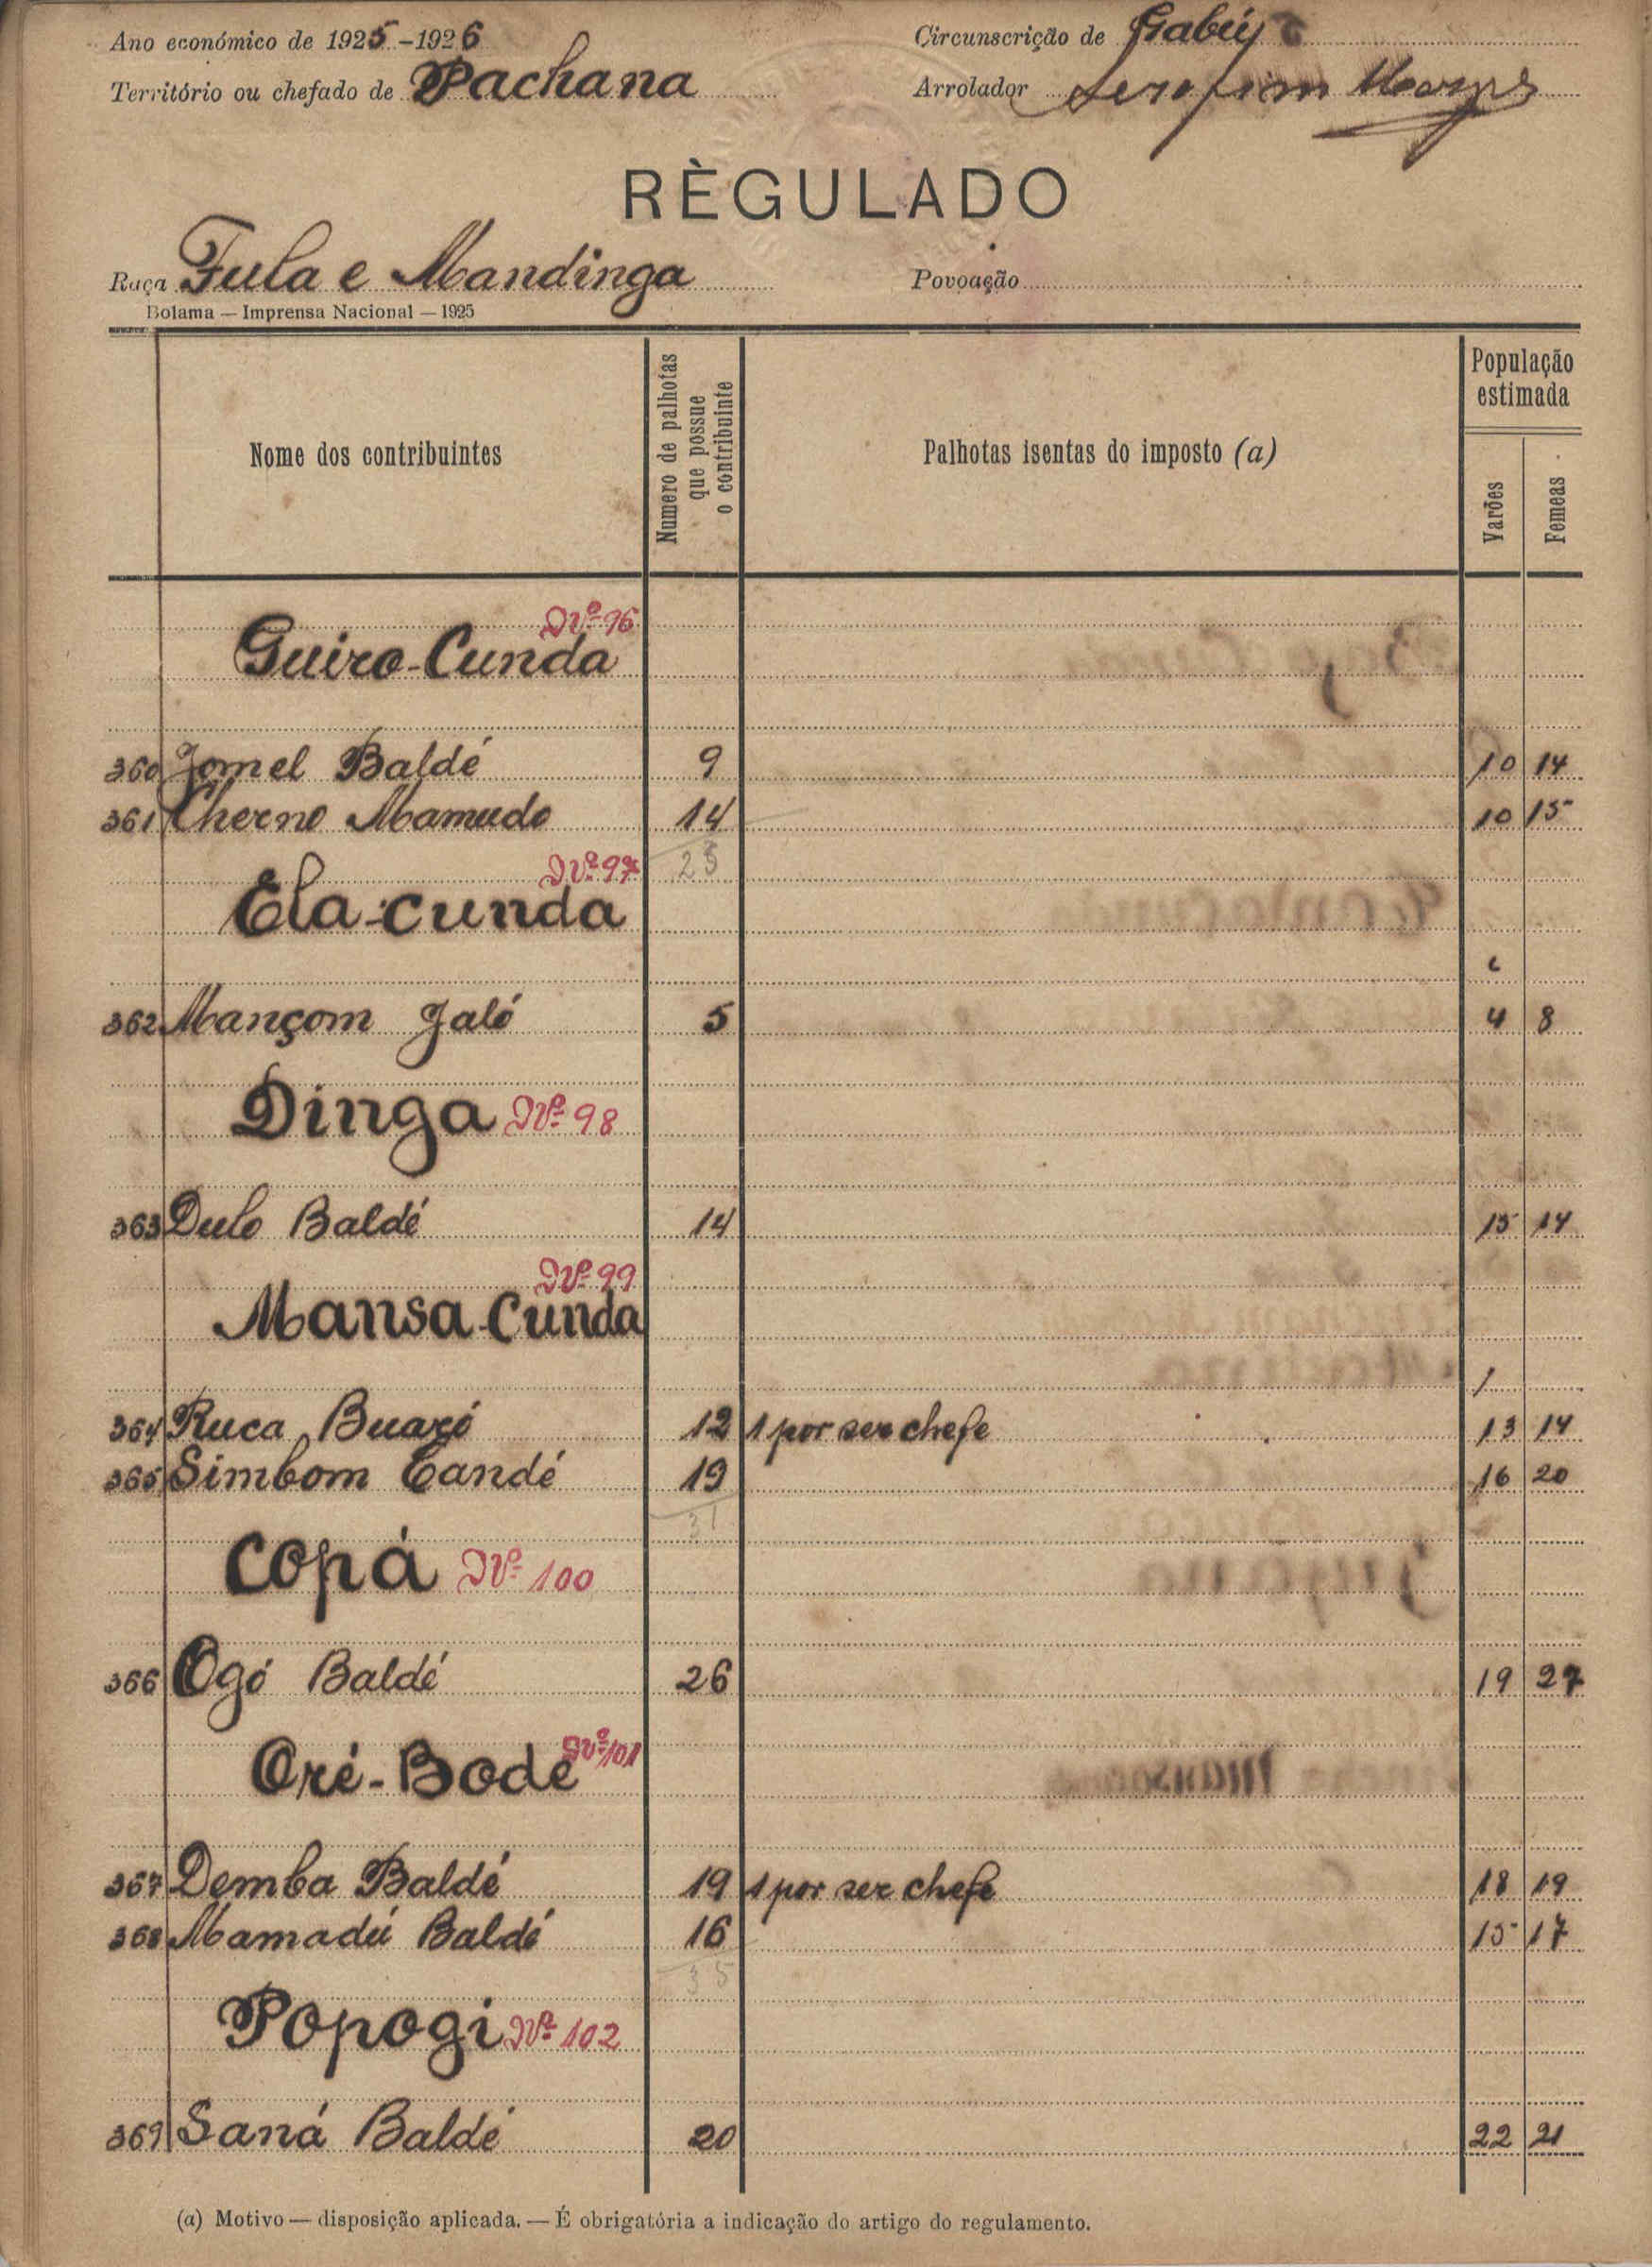 Ano económico de 1925-1926
Circunscrição de Gabú
Território ou chefado de Pachana
Arrolador Serafim
RÈGULADO
Raça Fula e Mandinga
Povoação
Bolama — Imprensa Nacional — 1925
Nome dos contribuintes
Numero de palhotas que possue o contribuinte
Palhotas isentas do imposto (a)
População estimada
Varões
Femeas
Nº 96
Guiro-Cunda
360 Jomel Baldé 9 10 14
361 Cherno Mamudo 14 10 15
23
Nº 97
Ela-cunda
362 Mançom Jaló 5 4 8
Dinga Nº 98
363 Dulo Baldé 14 15 14
Nº 99
Mansa-Cunda
1
364 Ruca Buaró 12 1 por ser chefe 13 14
365 Simbom Candé 19 16 20
31
Copá Nº 100
366 Ogó Baldé 26 19 27
Nº 101
Oré-Bode
367 Demba Baldé 19 1 por ser chefe 18 19
368 Mamadú Baldé 16 15 17
35
Popogi Nº 102
369 Saná Baldé 20 22 21
(a) Motivo — disposição aplicada. — É obrigatória a indicação do artigo do regulamento.